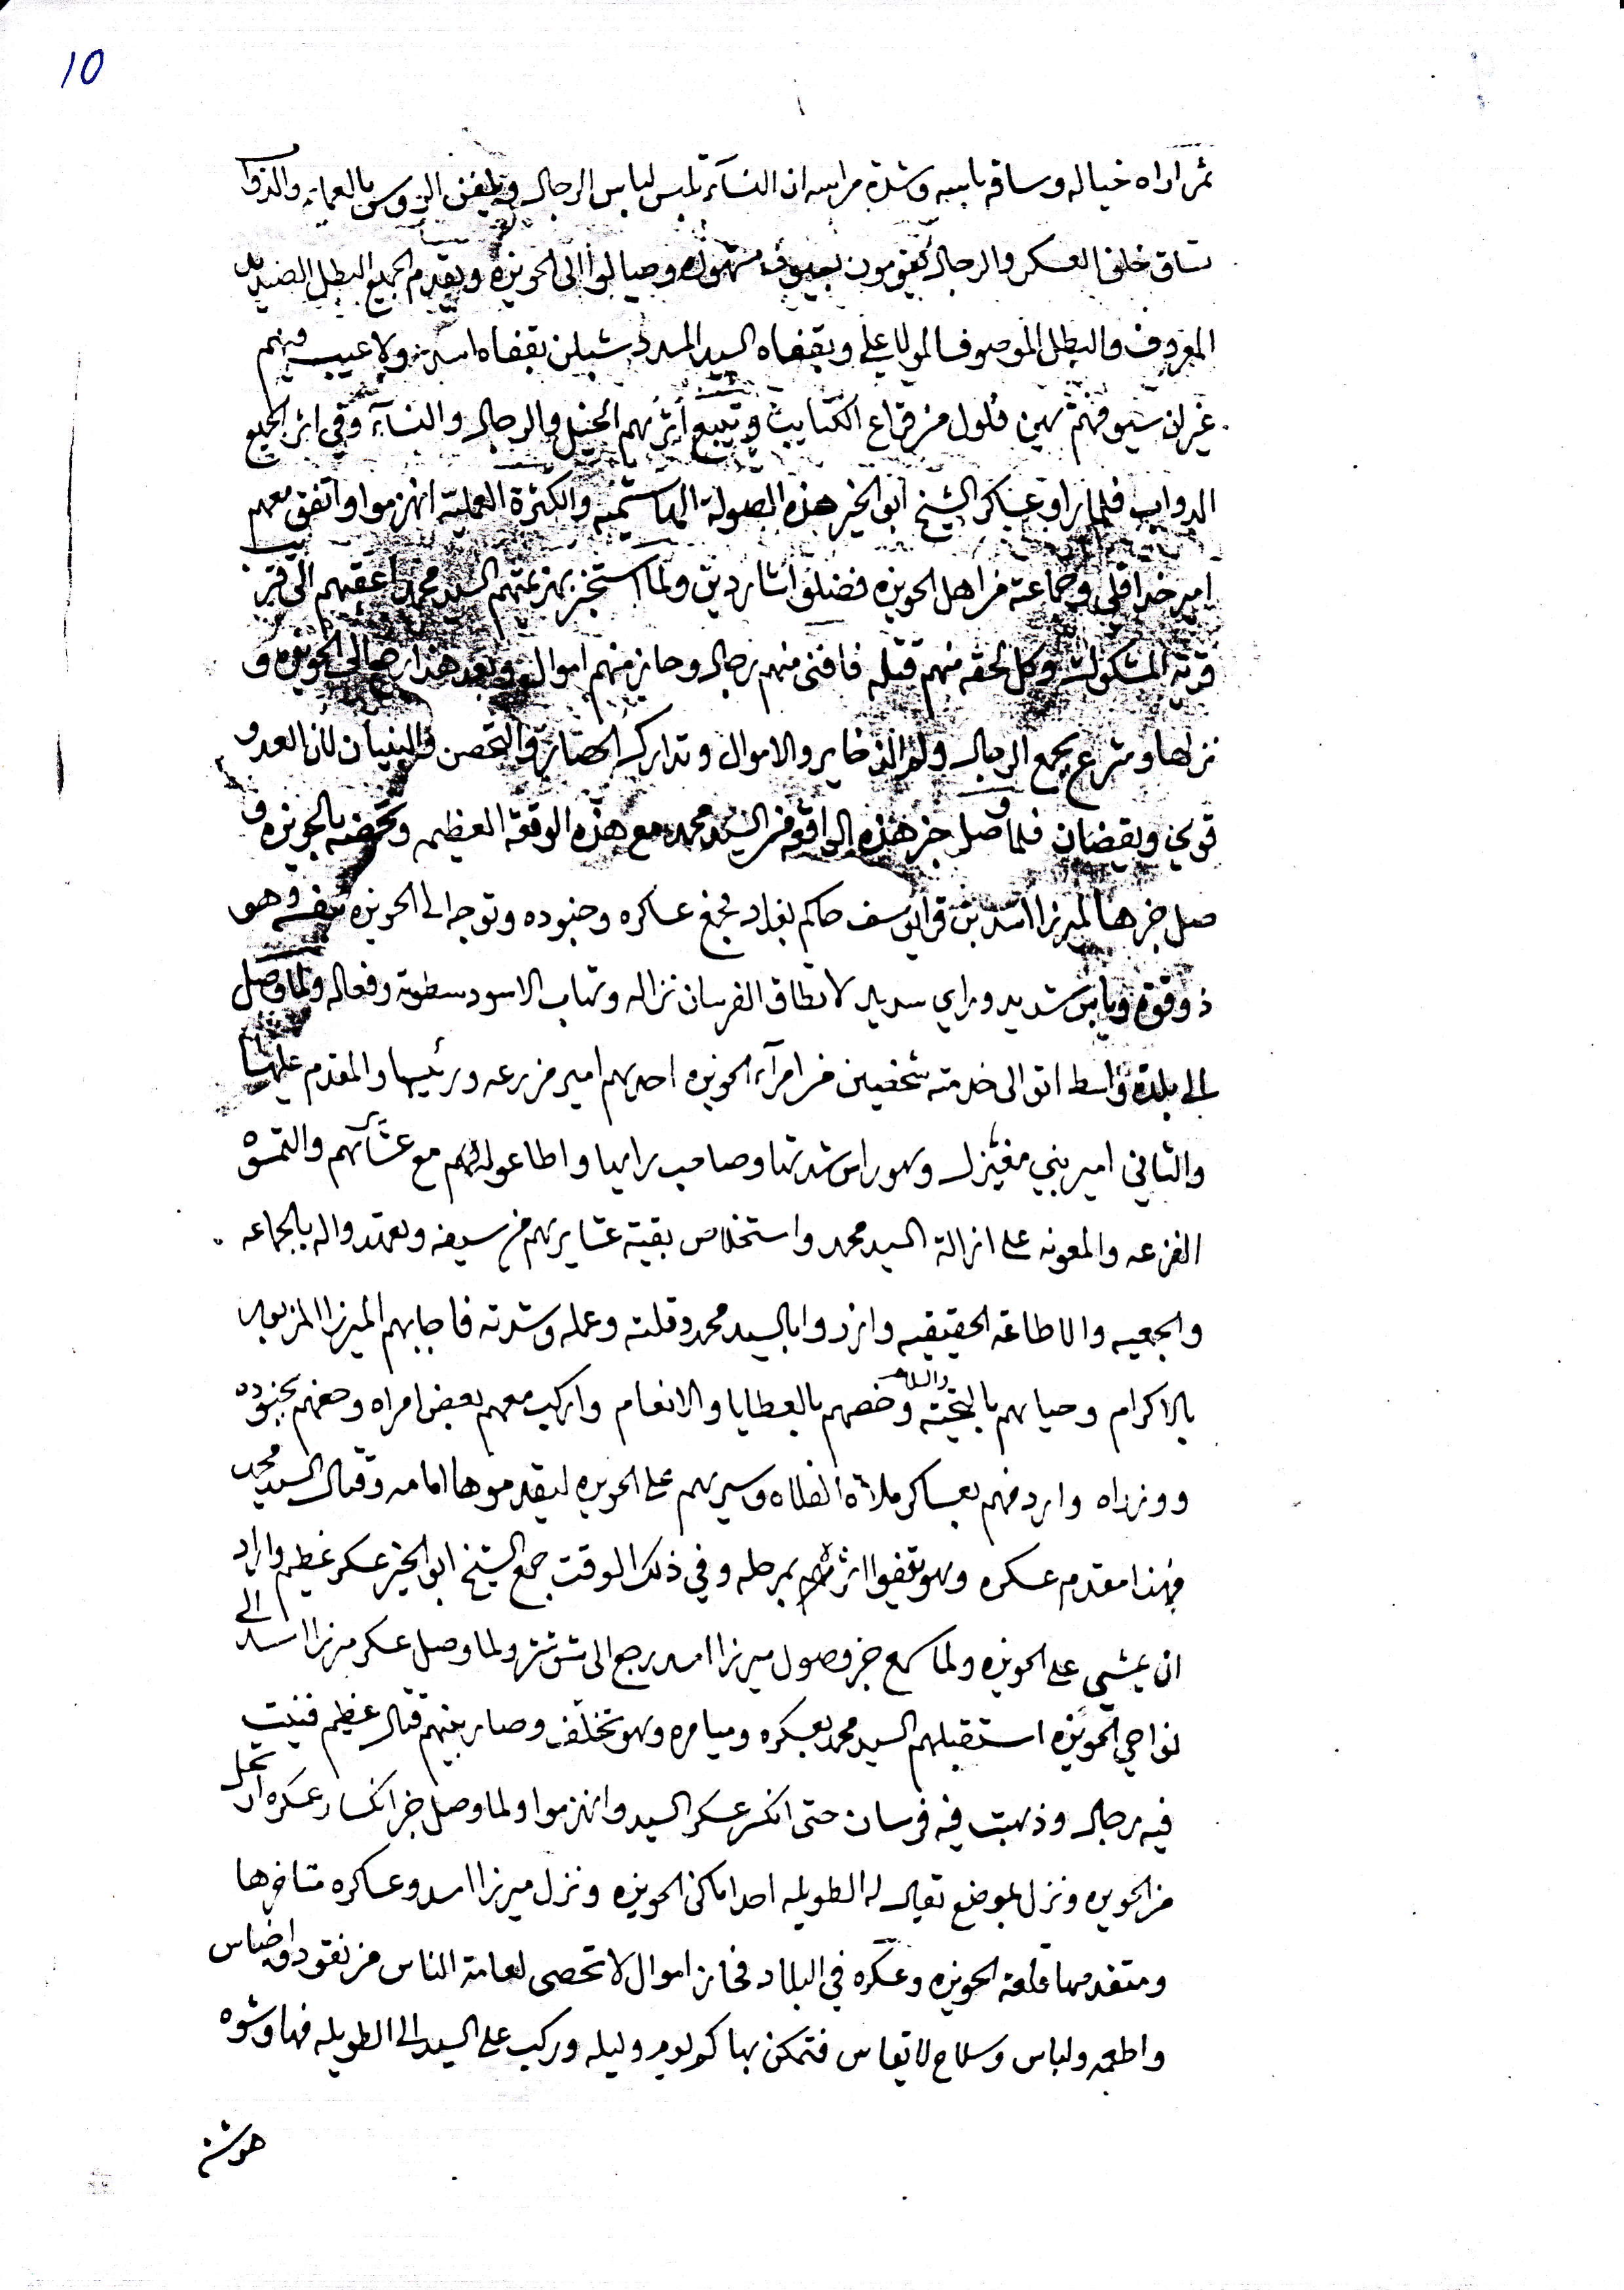 10
ثم اراه خياله وساقه باسه وشدة مراسه ان النسآء تلبس لباس الرجال ويلفن الروس بالعمايم والدواب
تساق خلف العسكر والرجال يقومون بسيوف مشهوره وصالوا الى الحويزه ويقدم الجميع البطل الضديد
المعروف والبطل الموصوف المولا علي ويقفاه السيد المسدد شبلن يقفاه اسد ولا عيب فيهم
غير ان سيوفهم بهن فلول من قراع الكتايب وتتبع اثرهم الخيل والرجال والنسآء وفي اثر الجميع
الدواب فلما راو عساكر الشيخ ابو الخير هذه الصولة الهاشميه والكثرة العمليه انهزموا واتفق معهم
امير خدا قلي وجماعة من اهل الحويزه فضلوا شاردين ولما استخبر بهزيمتهم السيد محمد اعقبهم الى قريب
قرية المشكوك وكل لحقه منهم قتله فافنى منهم رجال وحاز منهم اموال وبعد هذا رجع الى الحويزه و
نزلها وشرع بجمع الرجال ولم الذخاير والاموال وتدارك الحصار والتحصن والبنيان لان العدو
قوي ويقضان فلما وصل خبر هذه الواقعه من السيد محمد مع هذه الوقعة العظيمه وتحصنه بالحويزه و
صل خبرها لميرزا اسد بن قرا يوسف حاكم بغداد فجمع عساكره وجنوده وتوجه الى الحويزه بنفسه وهو
ذو قوة وباس شديد وراي سديد لا تطاق الفرسان نزاله وتهاب الاسود سطوته وفعاله ولما وصل
الى بلدة واسط اتو الى خدمته شخصين من امرآء الحويزه احدهم امير مزرعه ورئيسها والمقدم عليها
والثاني امير بني مغيزل وهو راس شدتها وصاحب رايها واطاعوا لهم مع عشآئرهم والتمسوه
الفزعه والمعونه على ازالة السيد محمد واستخلاص بقية عشايرهم من سيفه وتعهدوا له بالجماعه
والجمعيه والاطاعه الحقيقيه وازروا بالسيد محمد وقلته وعمله وشدته فاجابهم الميرزا المزبور
بالاكرام وحياهم بالتحية والسلام وخصهم بالعطايا والانعام واركب معهم بعض امراه وحفهم بجنوده
ووزراه واردفهم بعساكر ملاة الفلاه وسيرهم على الحويزه ليقدموها امامه وقتال السيد محمد
فهذا مقدم عسكره وهو يقفوا اثرهم بمرحله وفي ذلك الوقت جمع الشيخ ابو الخير عسكر عظيم واراد
ان يمشي على الحويزه ولما سمع خبر وصول ميرزا اسد رجع الى شوشتر ولما وصل عسكر ميرزا اسد الى
نواحي الحويزه استقبلهم السيد محمد بعسكره وميامره وهو تخلف وصار بينهم قتال عظيم فنيت
فيه رجال وذهبت فيه فرسان حتى انكسر عسكر السيد وانهزموا ولما وصل خبر انكسار عسكره ارتحل
من الحويزه ونزل بموضع يقال له الطويله احد اماكن الحويزه ونزل ميرزا اسد وعساكره متاخرها
ومتقدمها قلعة الحويزه وعسكره في البلاد فحاز اموال لا تحصى لعامة الناس من نقود واجناس
واطعمه ولباس وسلاح لا يقاس فتمكن بها كم يوم وليله وركب على السيد الى الطويله فهاوشوه
هوشة